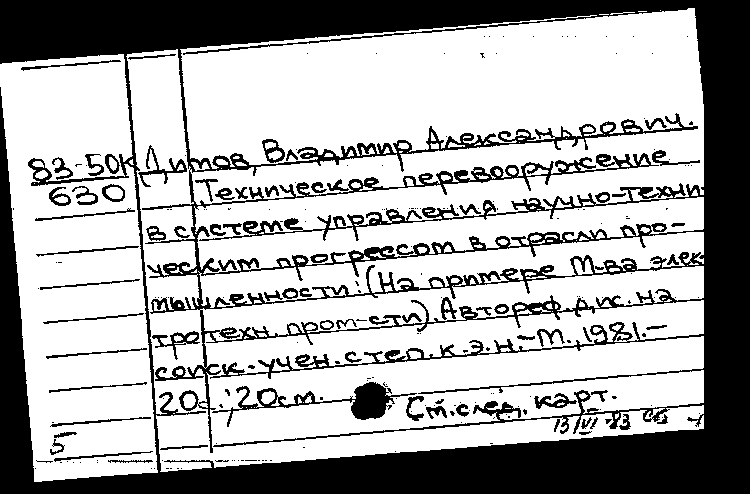 83-50К Дитов, Владимир Александрович.
630 Техническое перевооружение
в системе управления научно-техни-
ческим прогрессом в отрасли про-
мышленности: (На примере М-ва элек-
тротехн. пром-сти). Автореф. дис. на
соиск. учен. степ. к.э.н. - М., 1981. -
20с.; 20см.
См. след. карт.
5
13/VI 83